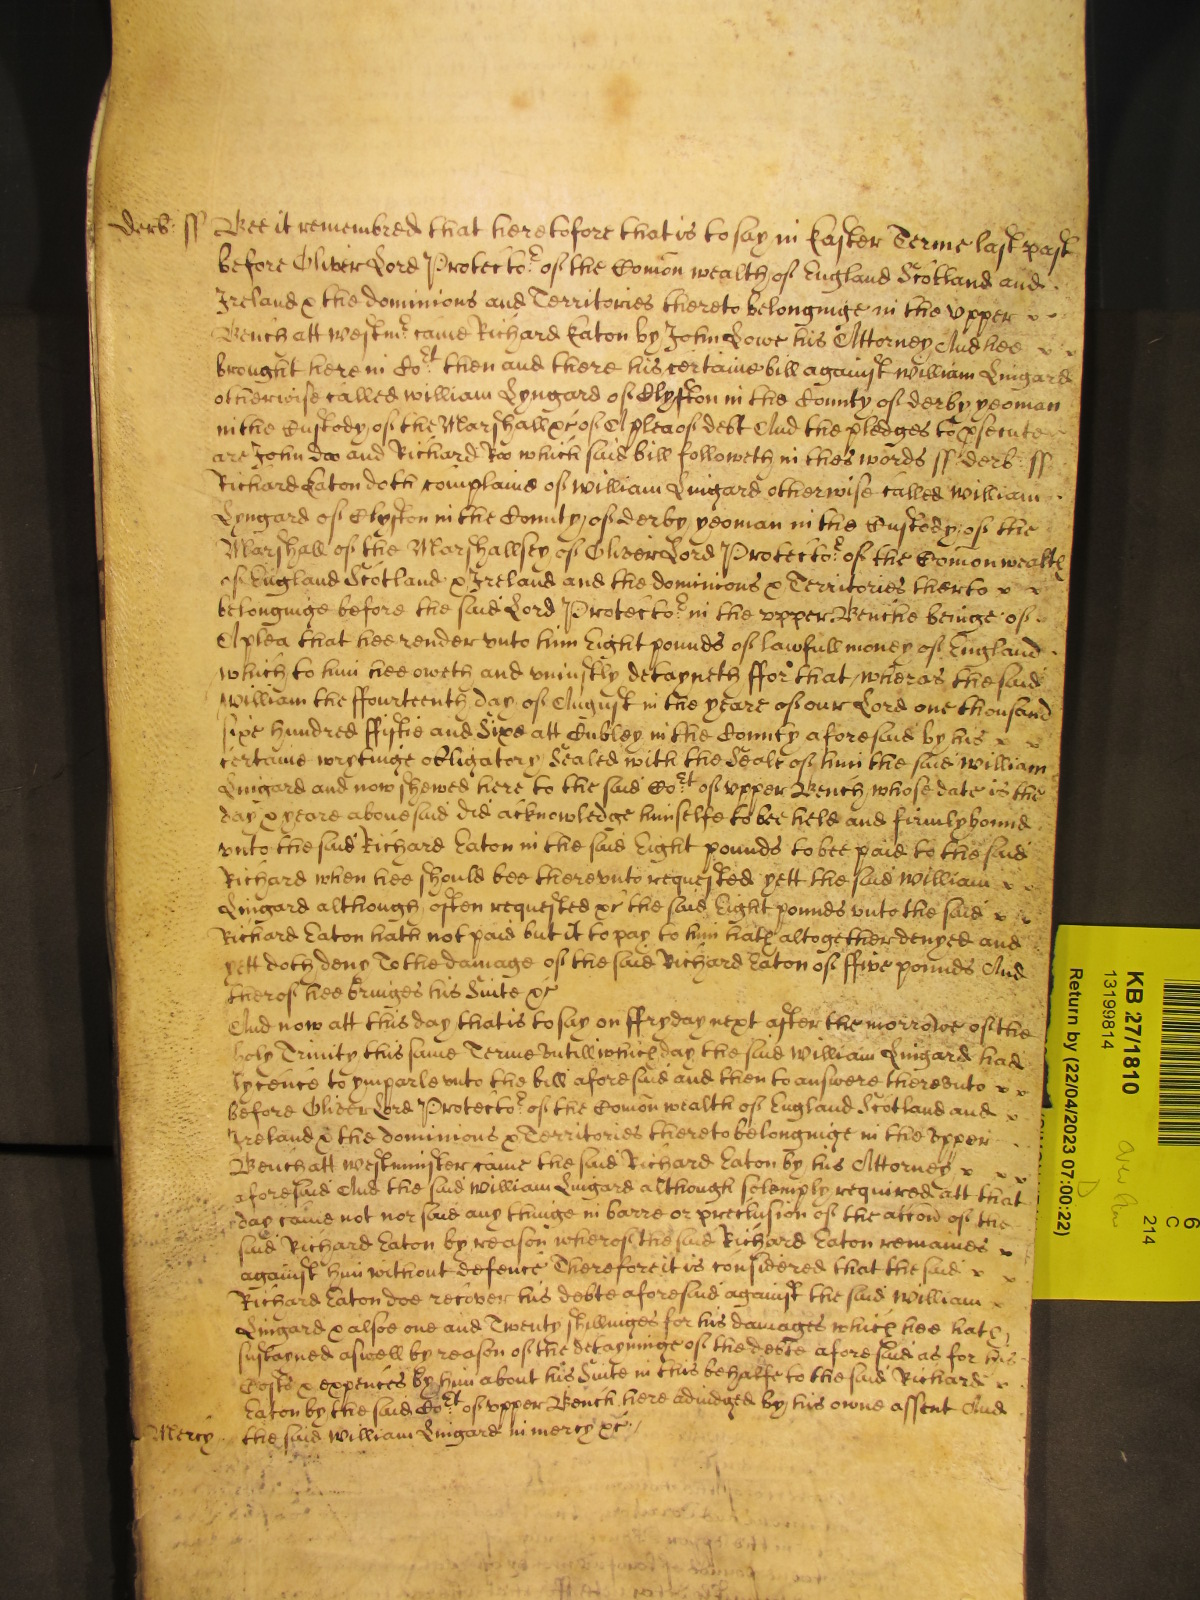 Derb: ss Bee it remembred that heretofore that is to say in Easter Terme last past
before Oliver Lord Protector of the Comon wealth of England Scotland and
Ireland & the dominions and Territories thereto belonginge in the upper
Bench att Westmr. came Richard Eaton by John Lowe his Attorney And hee
brought here in Cort then and there his certaine bill against William Lingard
otherwise called William Lyngard of Clyfton in the County of derby yeoman
in the Custody of the Marshall &c of A plea of debt And the pledges to psecute
are John doo and Richard Roo which said bill followeth in thes words ss derb: ss
Richard Eaton doth complaine of William Lingard otherwise called William
Lyngard of Clyfton in the County of derby yeoman in the Custody of the
Marshall of the Marshallsey of Oliver Lord Protector of the Comon wealth
of England Scotland & Ireland and the dominions & Territories therto
belonginge before the said Lord Protector in the upper Benche beinge of
A plea that hee render unto him Eight pounds of lawfull money of England
which to him hee oweth and uniustly detayneth ffor that wheras the said
William the ffourteenth day of August in the yeare of our Lord one thousand
sixe hundred ffiftie and Sixe att Cubley in the County aforesaid by his
certaine wrytinge obligatory Sealed with the Seale of him the said William
Lingard and now shewed here to the said Cort of upper Bench whose date is the
day & yeare abovesaid did acknowledge himselfe to bee held and firmly bound
unto the said Richard Eaton in the said Eight pounds to bee paid to the said
Richard when hee should bee thereunto requested yett the said William
Lingard although often requested &c the said Eight pounds unto the said
Richard Eaton hath not paid but it to pay to him hath altogether denyed and
yett doth deny To the damage of the said Richard Eaton of ffive pounds And
therof hee bringes his Suite &c
And now att this day that is to say on ffryday next after the morrowe of the
holy Trinity this same Terme Untill which day the said William Lingard had
lycence to ymparle unto the bill aforesaid and then to answere thereunto
before Oliver Lord Protector of the Comon wealth of England Scotland and
Ireland & the dominions & Territories thereto belonginge in the Upper
Bench att Westminster came the said Richard Eaton by his Attorney
aforesaid And the said William Lingard although solemply required att that
day came not nor said any thinge in barre or preclusion of the accon of the
said Richard Eaton by reason wherof the said Richard Eaton remaines
against him without defence Therefore it is considered that the said
Richard Eaton doe recover his debte aforesaid against the said William
Lingard & alsoe one and Twenty shillinges for his damages which hee hath
sustayned aswell by reason of the detayninge of the debte aforesaid as for his
Costs & expences by him about his Suite in this behalfe to the said Richard
Eaton by the said Cort of upper Bench here adiudged by his owne assent And
Mercy the said William Lingard in mercy &c
KB 27/1810
13199814
Return by (22/04/2023 07:00:22)
6
C
214